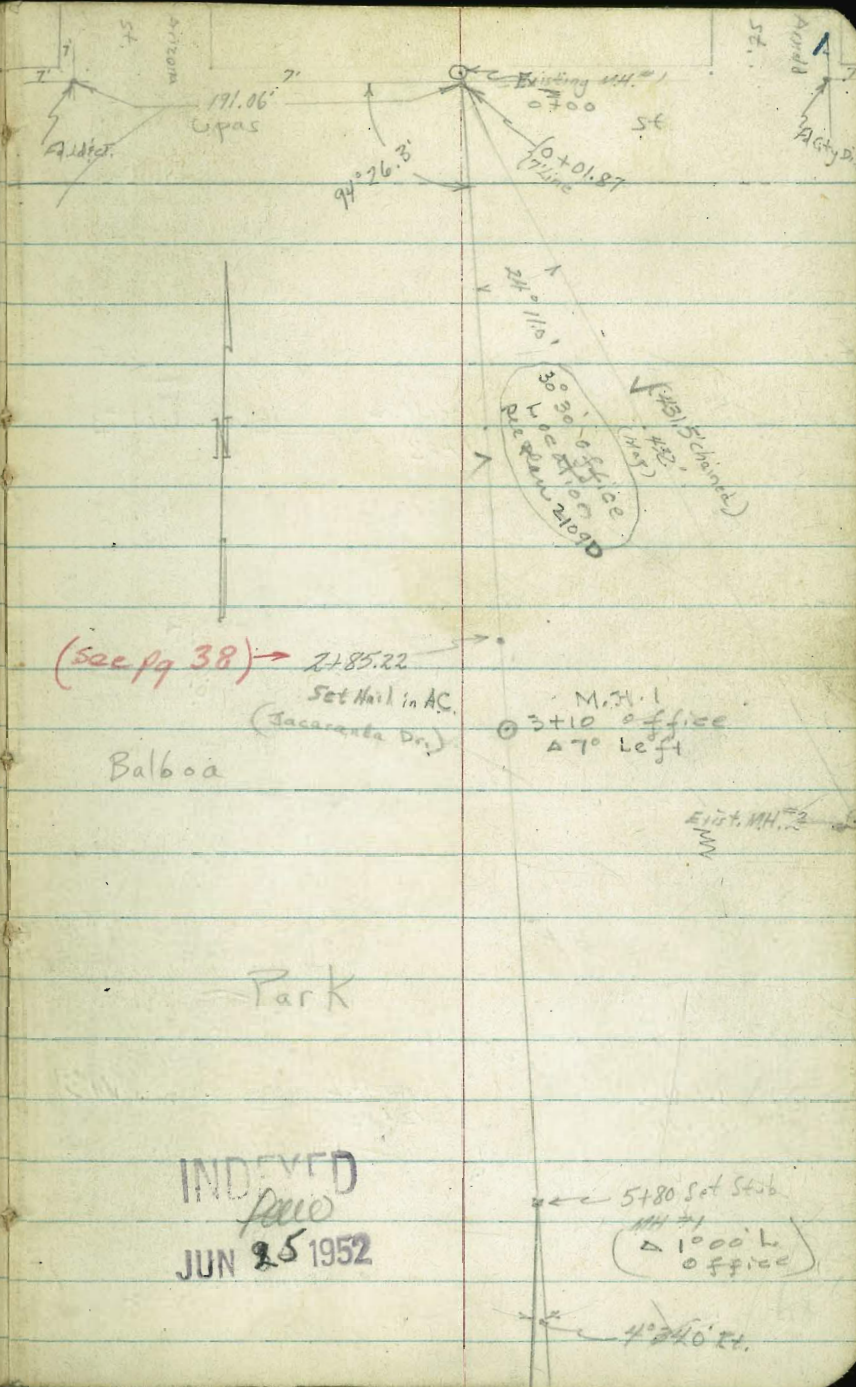 St.
Arizona
St.
Arnold
1
7'
7'
7'
7
Existing M.H. #1
0+00
191.06'
Upas
St
0+01.87
7' Line
94°26.3'
24°11.0'
30°30' office
Location
per plan 2109D
(431.5' chained)
432'
(see pg 38) → 2+85.22
Set Nail in AC.
(Jacaranda Dr.)
M.H. 1
3+10 office
Δ 7° Left
Balboa
Exist. M.H. #2
Park
INDEXED
JUN 25 1952
5+80 Set Stub
MH #1
(Δ 1°00' L
office)
4°34.0' Rt.